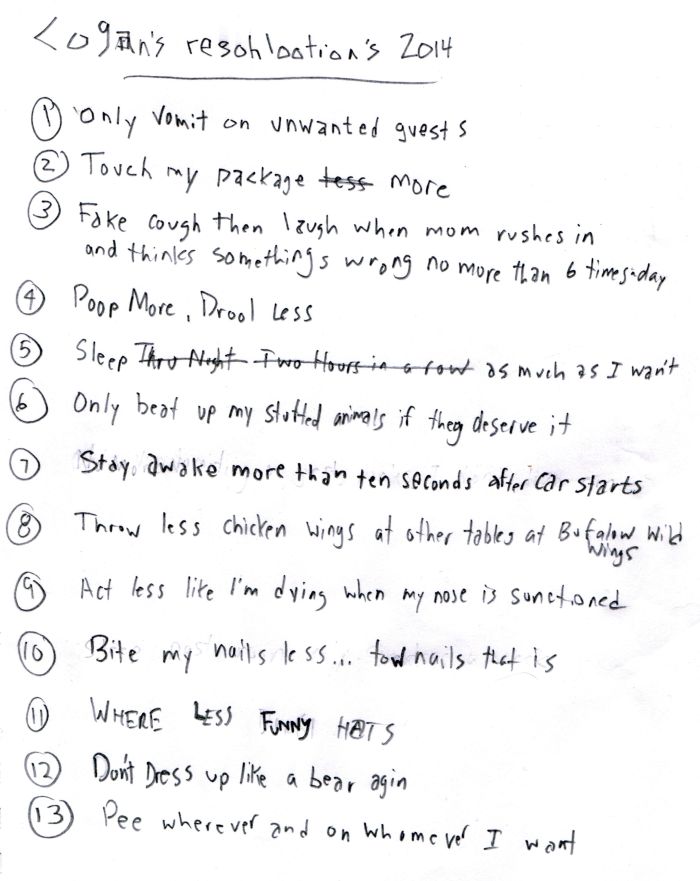 Logan's resohlootion's 2014
① Only vomit on unwanted guests
② Touch my package ~~less~~ more
③ Fake cough then laugh when mom rushes in
and thinks somethings wrong no more than 6 times a day
④ Poop More, Drool Less
⑤ Sleep ~~Thru Night~~ ~~Two Hours in a row~~ as much as I wan't
⑥ Only beat up my stuffed animals if they deserve it
⑦ Stay awake more than ten seconds after car starts
⑧ Throw less chicken wings at other tables at Bufalow Wild
Wings
⑨ Act less like I'm dying when my nose is sunctioned
⑩ Bite my nails less... tow nails that is
⑪ WHERE LESS FUNNY HATS
⑫ Don't Dress up like a bear agin
⑬ Pee wherever and on whomever I want